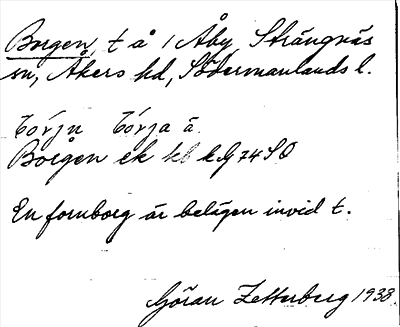 Borgen, t å 1 Åby Strängnäs
sn, Åkers hd, Södermanlands l.
Borgen ek kb k G 74 SO
En fornborg är belägen invid t.
Göran Zetterberg 1938